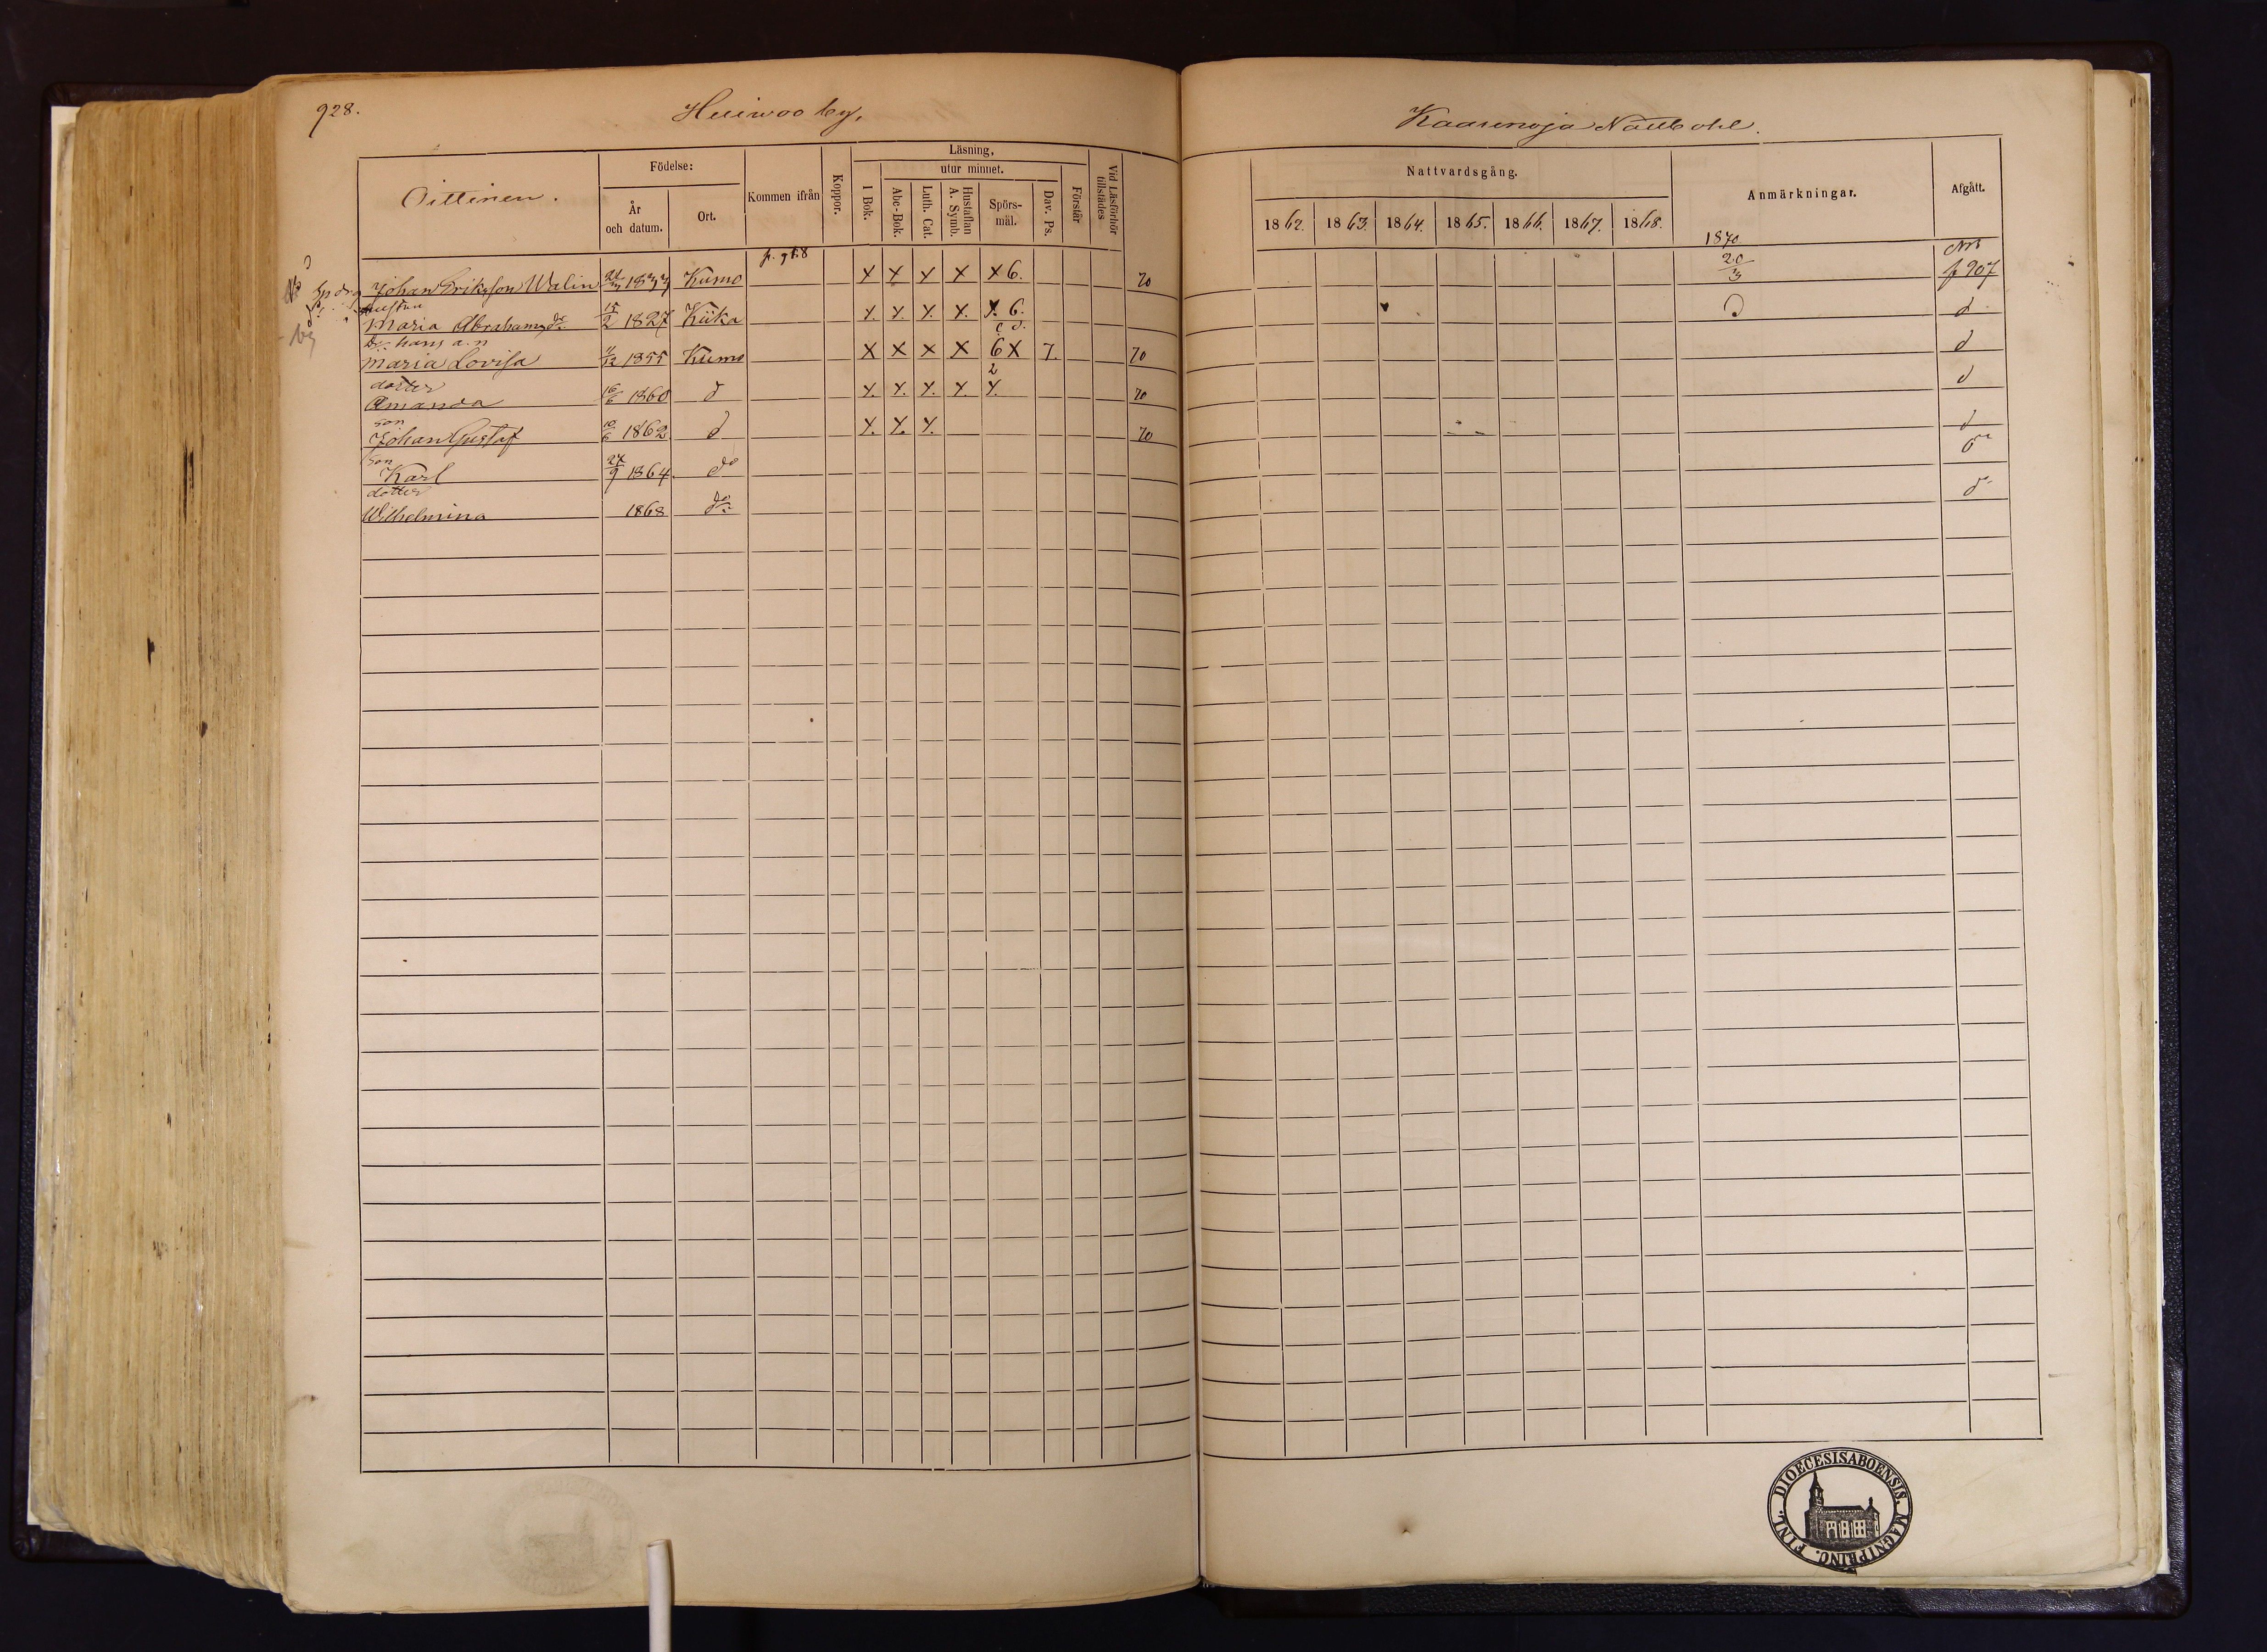 928.
Huiwoo by,
Kaarenoja Nautbohl.
Oittinen.
Födelse:
År och datum.
Ort.
Kommen ifrån
Koppor.
Läsning,
utur minnet.
I Bok.
Abc-Bok.
Luth. Cat.
Hustaflan A. Symb.
Spörs-mål.
Dav. Ps.
Förstår
Vid Läsförhör tillstädes
Nattvardsgång.
1862. 1863. 1864. 1865. 1866. 1867. 1868.
Anmärkningar.
Afgått.
Johan Eriksson Walin 1833 Kumo X X X X X 6. 70 1870 20/3 f 907
hustru
Maria Abrahams dr 15/2 1827 Kiika X. X. X. X. X. 6. d
Dr hans a.n
Maria Lovisa 1855 Kumo X X X X 6 X 7. 70 d
dotter
Amanda 16/6 1860 d X. X. X. X. X. 70 d
son
Johan Gustaf 1862 d X. X. X. 70 d
son
Karl 27/9 1864. do
dotter
Wilhelmina 1868 do
FINL. DIOECESIS ABOENSIS. MAGNI PRINC.